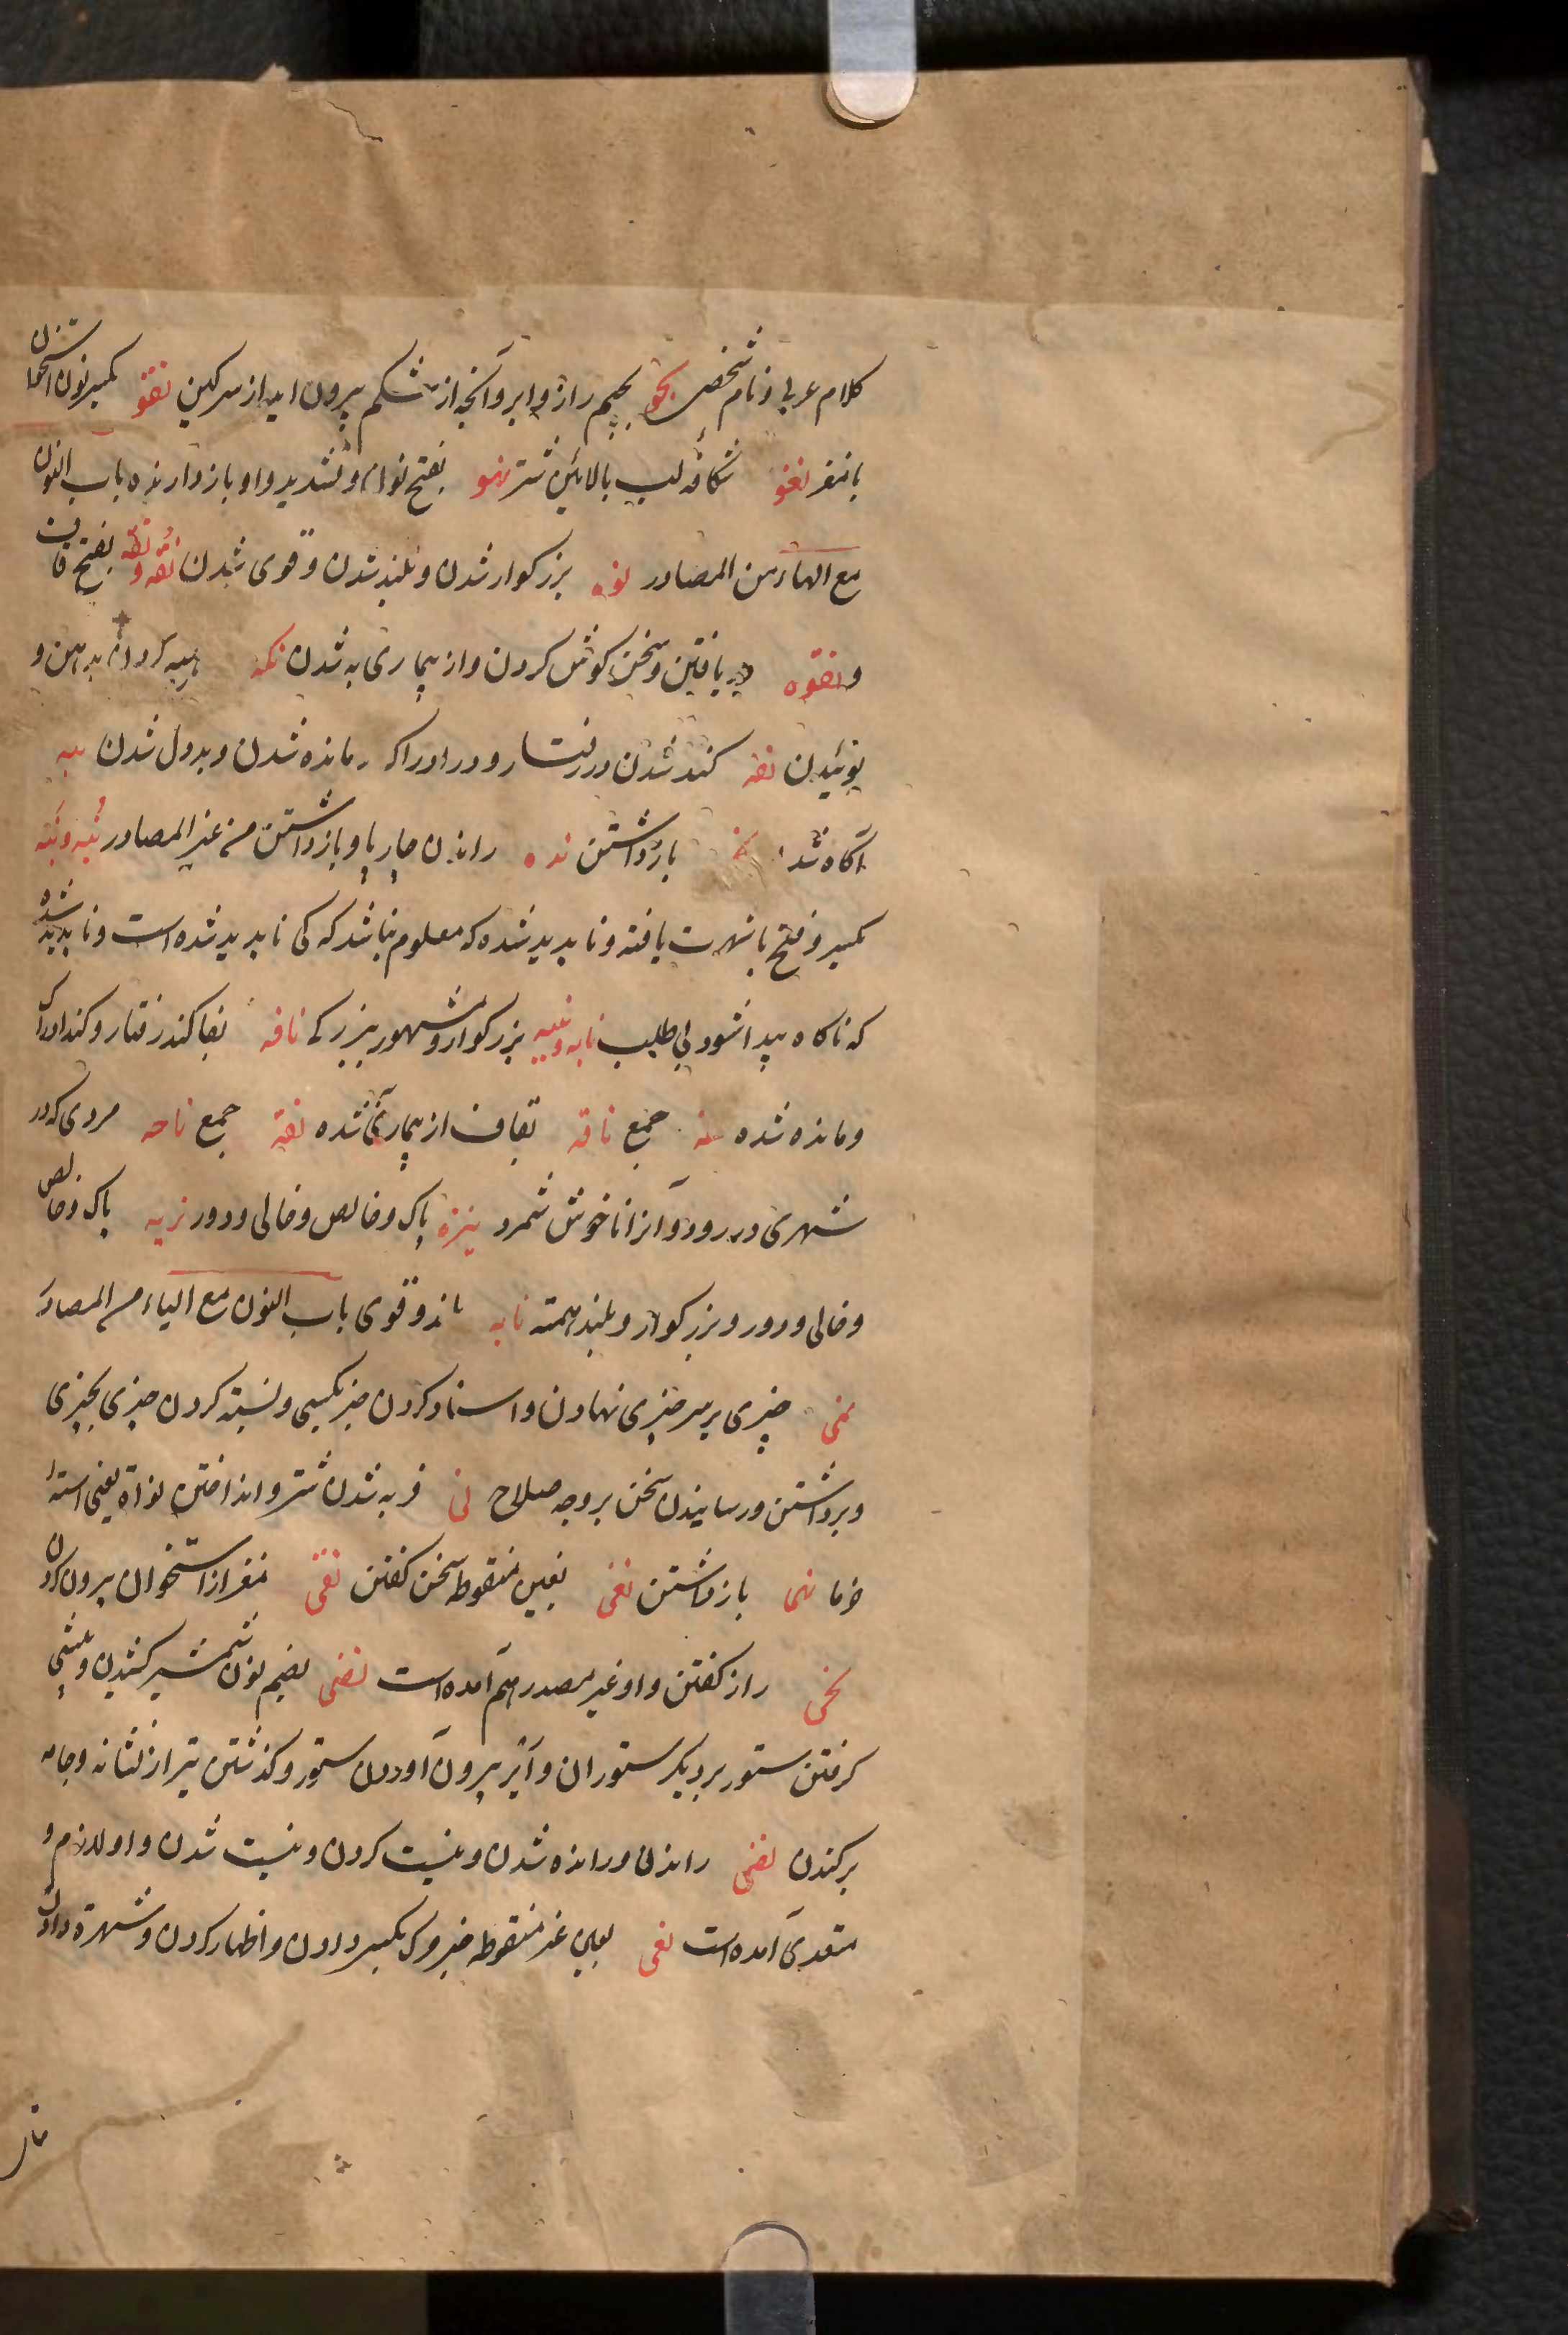 کلام عربی و نام شخصی نجو بجیم راز و ابر و آنچه از شکم بیرون اید از سرکین نقو بکسر نون استخوان
با مغز نغو شکافه لب بالائین شتر نهو بفتح نون و تشدید واو بازدارنده باب النون
مع الهاء من المصادر نوه بزرکوار شدن و بلند شدن و قوی شدن نقه و نقه بفتح قاف
و نقوه دریافتن و سخن کوش کردن و از بیماری به شدن نکه بدهن و
بوئیدن نفه کند شدن در رفتار و در ادراک و مانده شدن و بددل شدن نبه
آکاه شدن بازداشتن نده راندن چارپا و بازداشتن من غیر المصادر نبه و نبه
بکسر و فتح با شهرت یافته و ناپدید شده که معلوم نباشد که کی ناپدید شده است و ناپدید شده
که ناکاه پیدا شود بی طلب نابه و نبیه بزرکوار و مشهور ببزرکی نافه بفا کند رفتار و کند ادراک
و مانده شده نفه جمع ناقه بقاف از بیماری به شده نقه جمع مردی که در
شهری در رود و آنرا ناخوش شمرد نزه پاک و خالص و خالی و دور نزیه پاک و خالص
و خالی و دور و بزرکوار و بلند همته نابه بلند و قوی باب النون مع الیاء من المصادر
نمی چیزی بر سر چیزی نهادن و اسناد کردن چیز بکسی و نسبته کردن چیزی بچیزی
و برداشتن و رسانیدن سخن بر وجه صلاح نی فربه شدن شتر و انداختن نواة یعنی استه
خرما نهی بازداشتن نغی بغین منقوطه سخن کفتن نقی مغز از استخوان بیرون کردن
نجی راز کفتن و او غیر مصدر هم آمده است نضی بضم نون شمشیر کشیدن و پیشی
کرفتن ستور بر دیکر ستوران و آنیز بیرون آوردن ستور و کذشتن تیر از نشانه و جامه
برکندن نفی راندن و رانده شدن و نیست کردن و نیست شدن و او لازم و
متعدی آمده است نعی بعین غیر منقوطه خبر مرک بکسی دادن و اظهار کردن و شهرة دادن